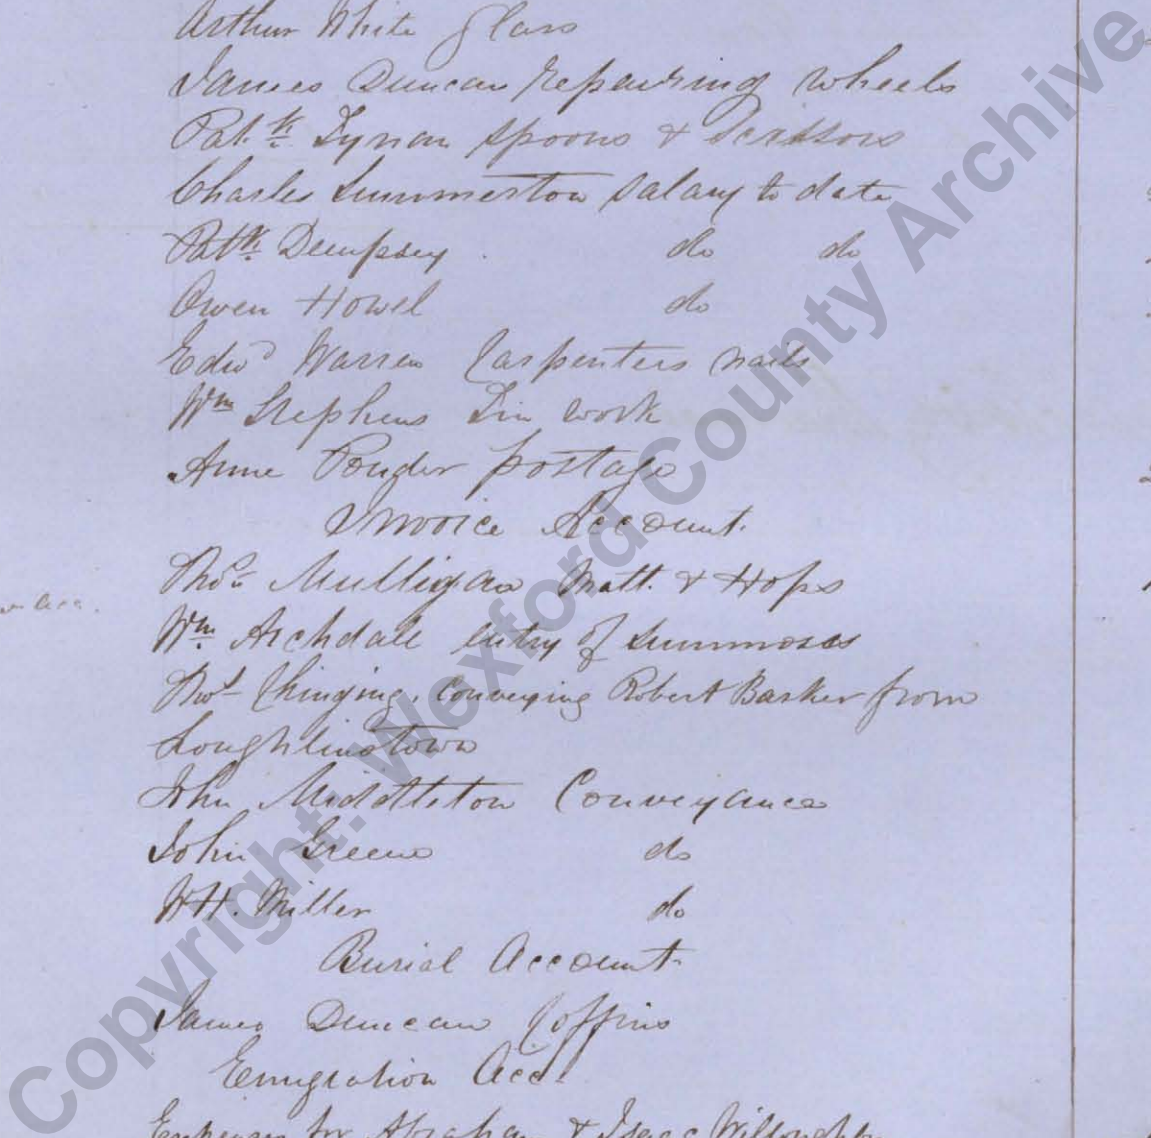 Arthur White Glass
James Duncan repairing wheels
Patk. Tynan spoons & Scissors
Charles Summerton Salary to date
Patk. Dempsey do do
Owen Howel do
Edwd Warren Carpenters nails
Wm Stephens Tin work
Anne Ponder postage
Invoice Account
Thos. Mulligan Malt & Hops
acc.
Wm. Archdale entry of Summoses
Thos. conveying Robert Barker from
Loughlinstown
John Middleton Conveyance
John Greene do
WH. Miller do
Burial Account
James Duncan Coffins
Emigration Acct.
Expenses for Abraham & Isaac Willoughby
Copyright: Wexford County Archive